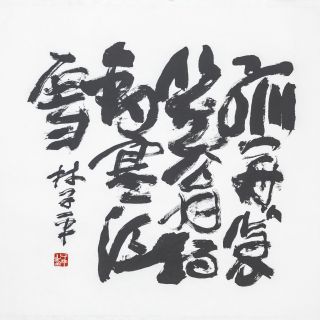 孤舟蓑
笠翁独
钓寒江
雪
林子平